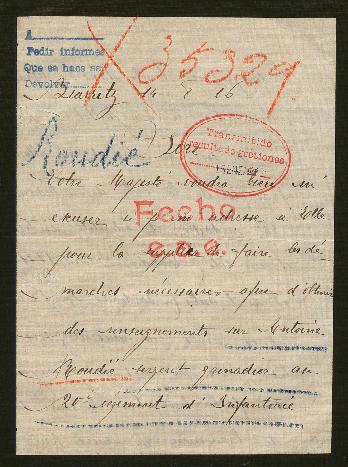 A
Pedir informes
Que se hace sa
Devolver
35329
Biarritz 14 16
Roudié
Sire
Transmitido
resultado gestiones
Votre Majesté voudra bien m'
excuser si m'adresse à Elle
Fecho
pour la supplier de faire les dé
marches nécessaires afin d'obtenir
des renseignements sur Antoine
Roudié sergent grenadier au
20e régiment d'Infanterie